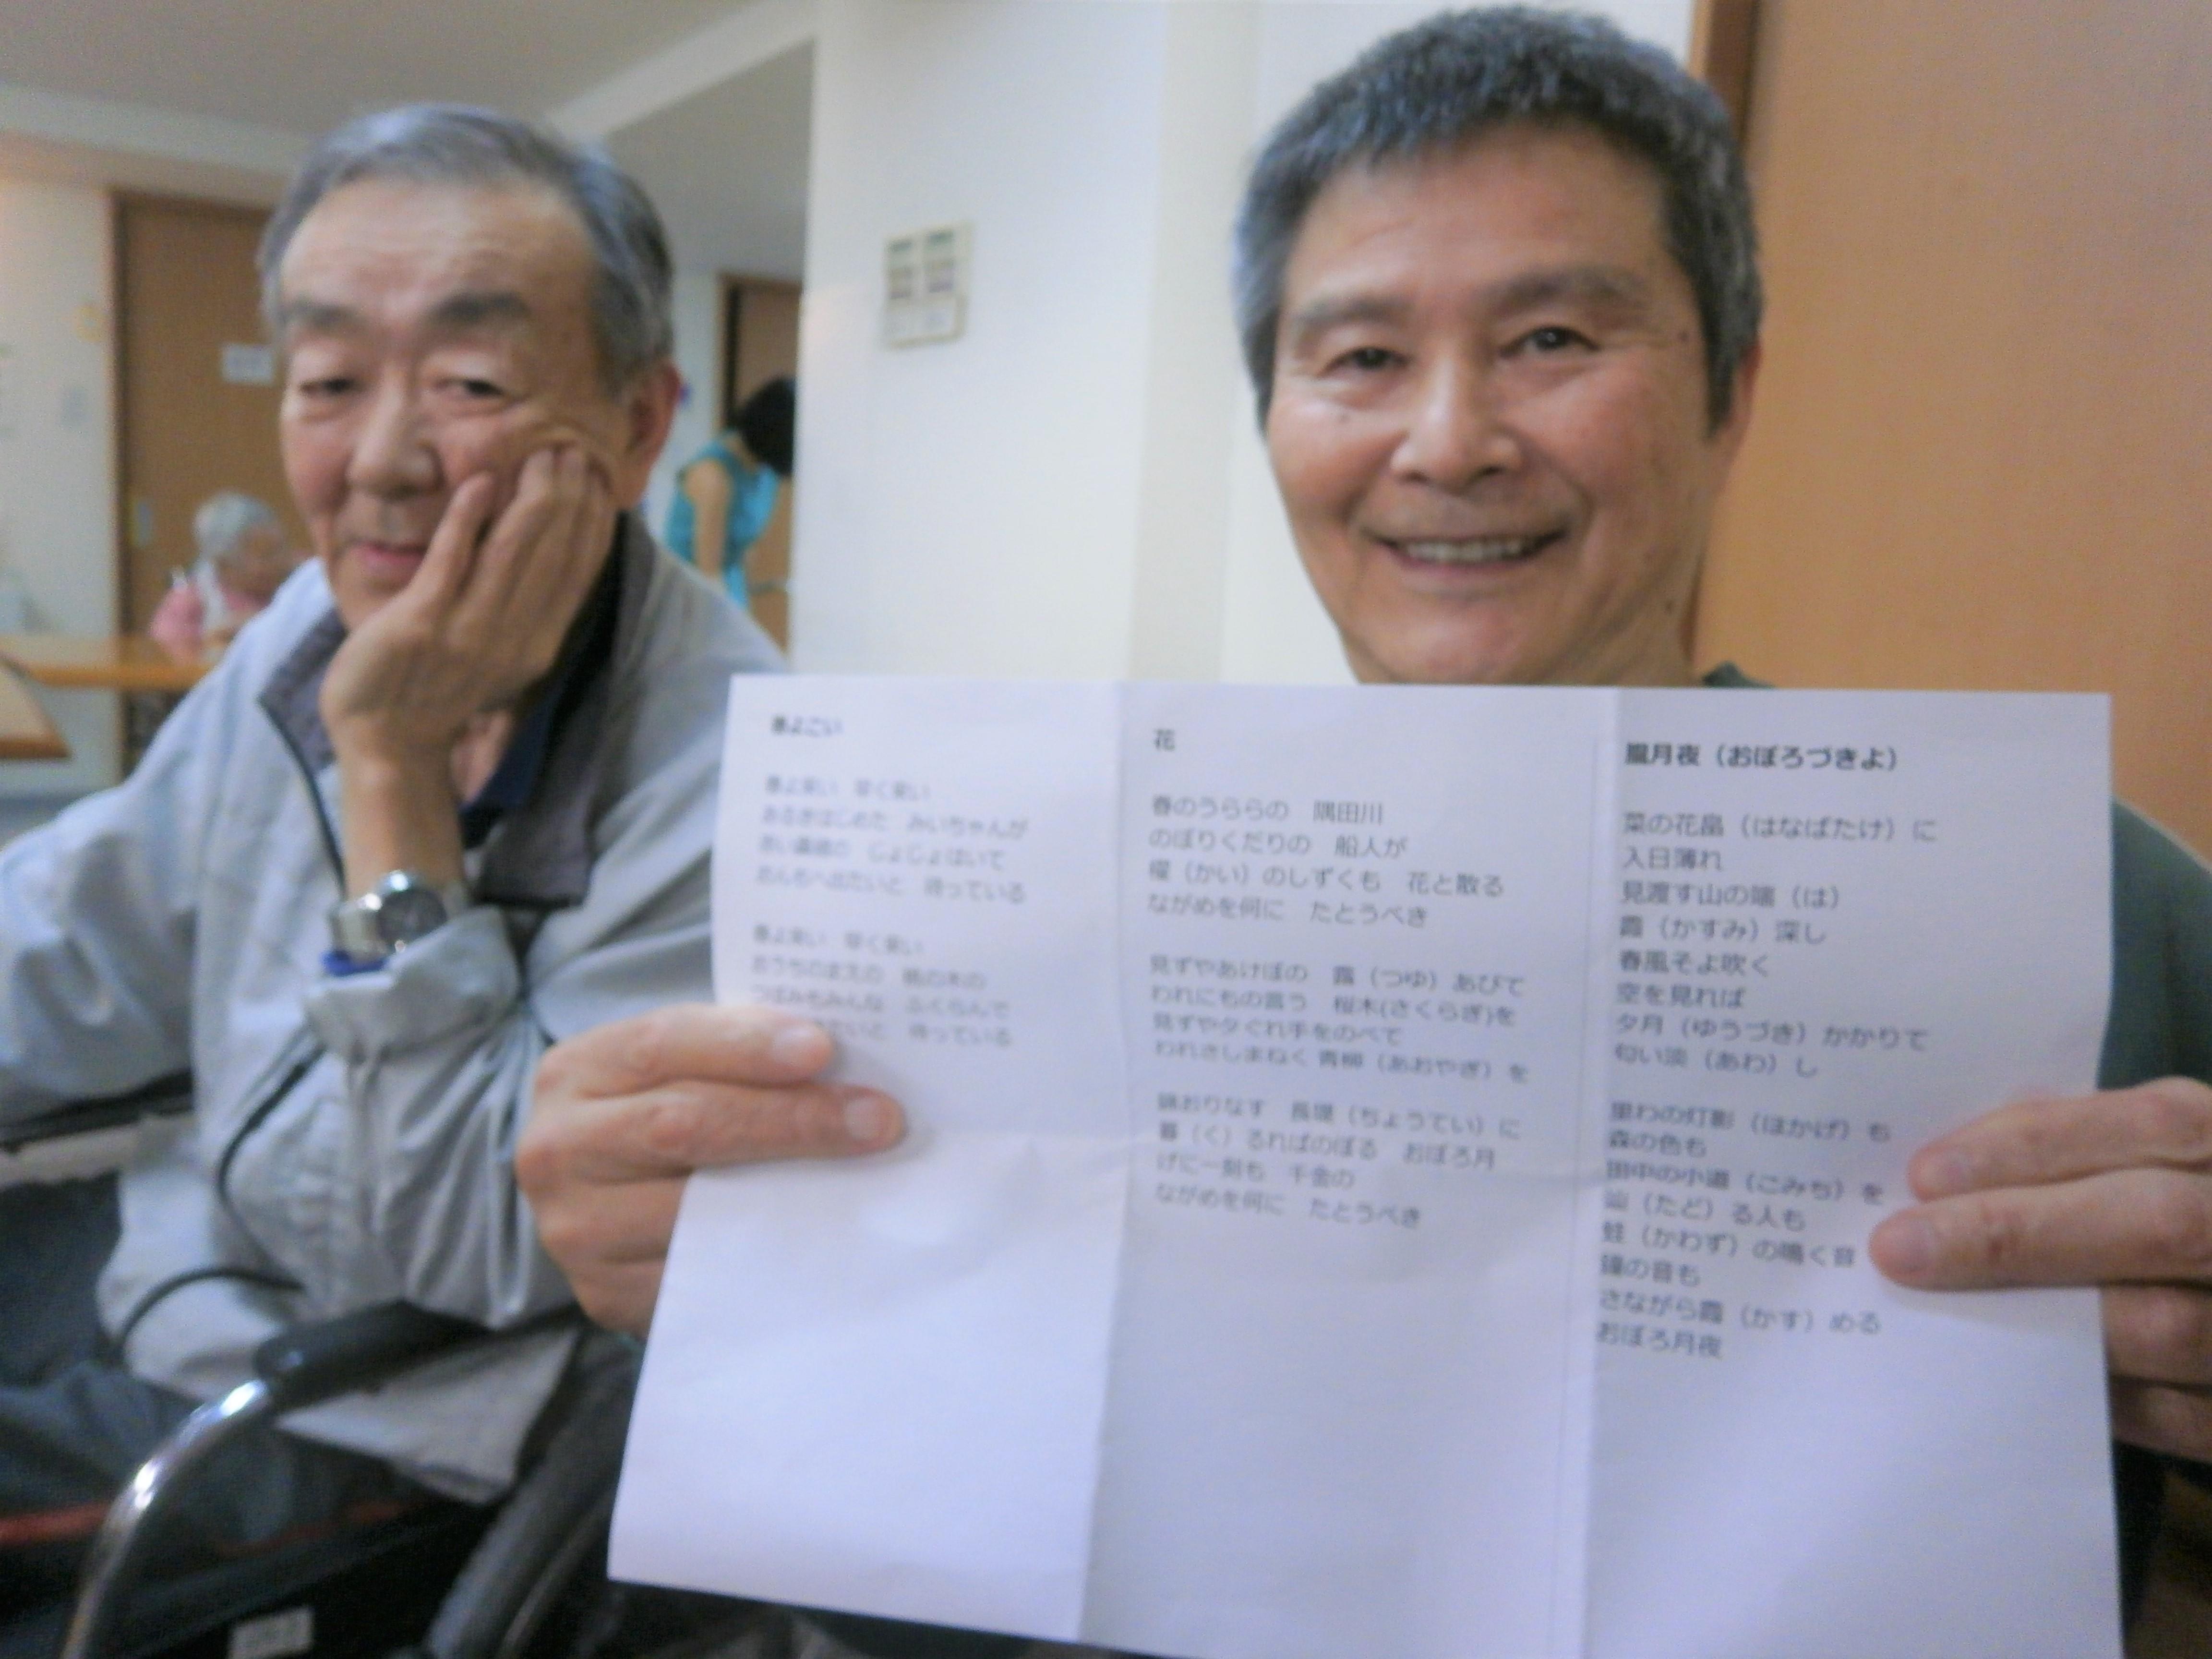 春よこい
春よ来い 早く来い
あるきはじめた みいちゃんが
赤い鼻緒の じょじょはいて
おんもへ出たいと 待っている
春よ来い 早く来い
おうちのまえの 桃の木の
つぼみもみんな ふくらんで
たいと 待っている
花
春のうららの 隅田川
のぼりくだりの 船人が
櫂（かい）のしずくも 花と散る
ながめを何に たとうべき
見ずやあけぼの 露（つゆ）あびて
われにもの言う 桜木(さくらぎ)を
見ずや夕ぐれ手をのべて
われさしまねく 青柳（あおやぎ）を
錦おりなす 長堤（ちょうてい）に
暮（く）るればのぼる おぼろ月
げに一刻も 千金の
ながめを何に たとうべき
朧月夜（おぼろづきよ）
菜の花畠（はなばたけ）に
入日薄れ
見渡す山の端（は）
霞（かすみ）深し
春風そよ吹く
空を見れば
夕月（ゆうづき）かかりて
匂い淡（あわ）し
里わの灯影（ほかげ）も
森の色も
田中の小道（こみち）を
辿（たど）る人も
蛙（かわず）の鳴く音
鐘の音も
さながら霞（かす）める
おぼろ月夜